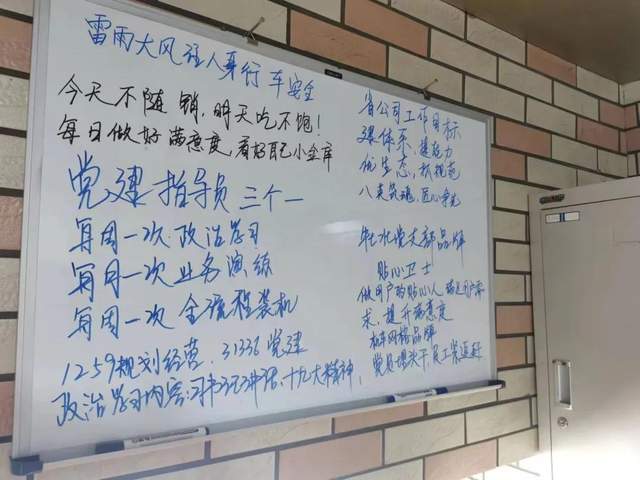 雷雨大风注人身行车安全
今天不随销,明天吃不饱!
每日做好满意度,看好自己小金库
党建指导员 三个一
每周一次 政治学习
每月一次 业务演练
每周一次 全流程装机
1259规划经营、31336党建
政治学习内容:习书记讲话、十九大精神、
省公司工作目标
强体系、提能力
优生态、树规范
八支筑魂、匠心争先
党支部品牌
贴心卫士
做用户的贴心人、满足用户需
求、提升满意度
网格品牌
党员埋头干、员工紧追赶